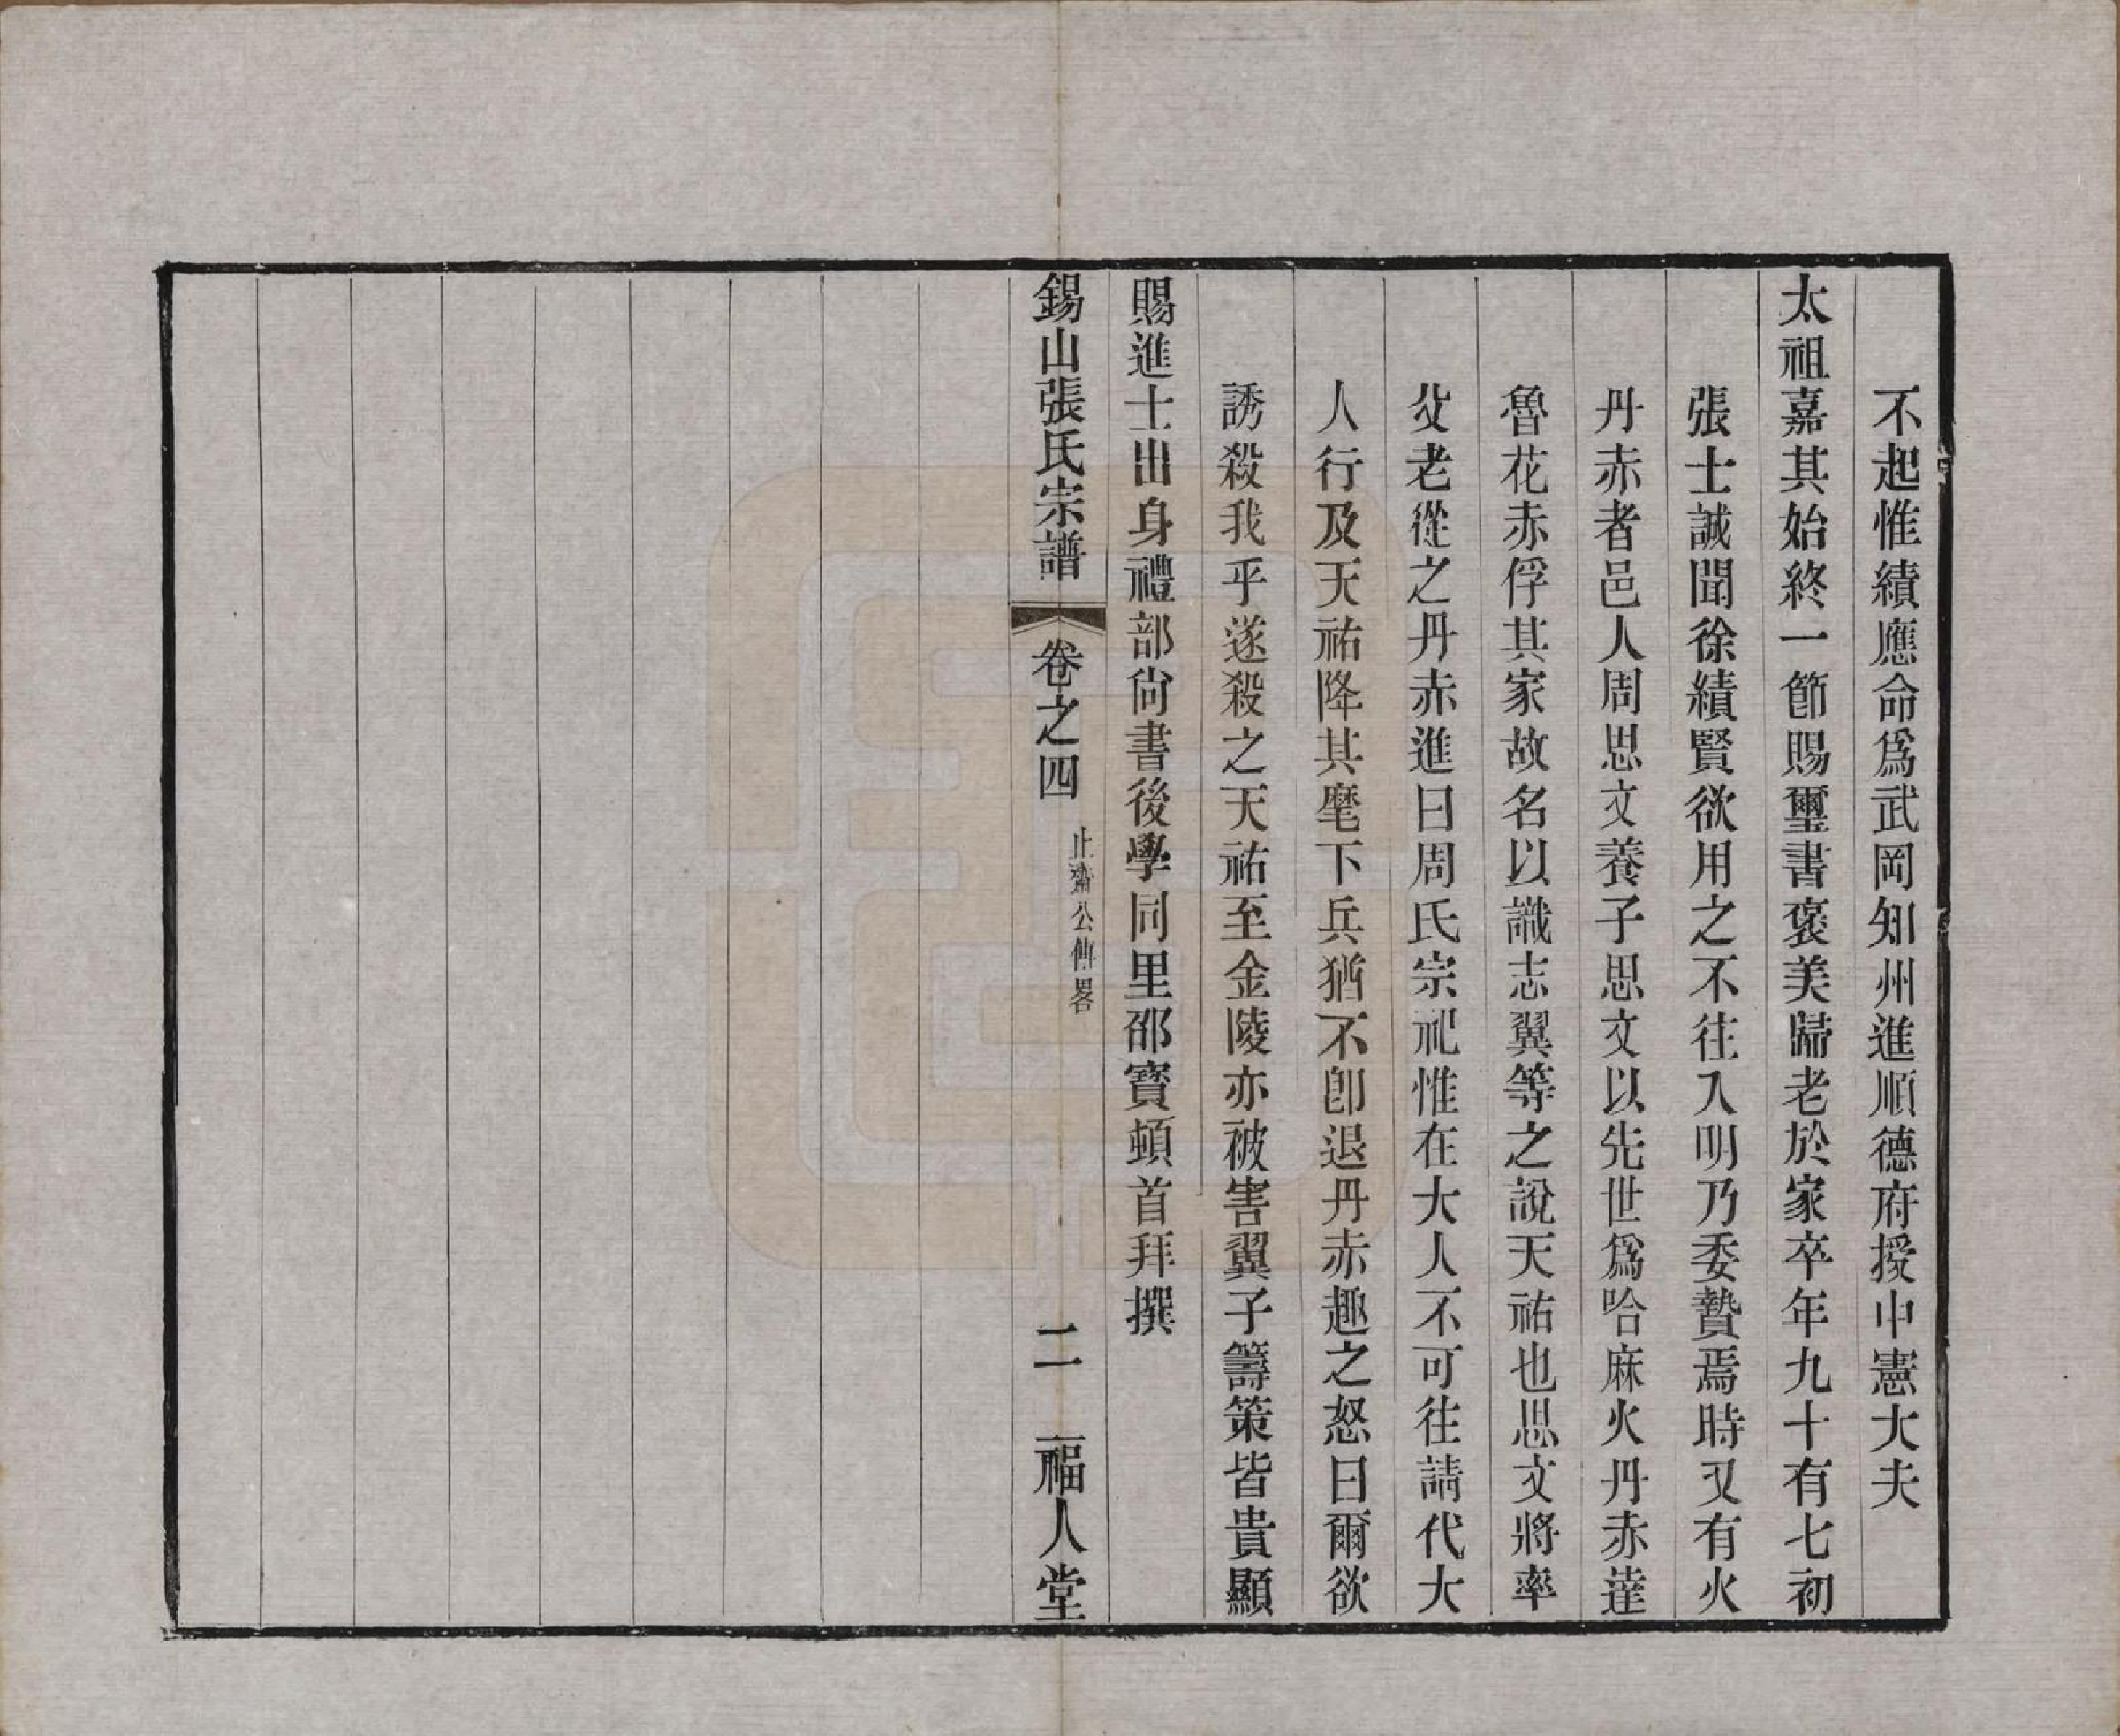 不起惟績應命爲武岡知州進順德府授中憲大夫
太祖嘉其始終一節賜璽書褒美歸老於家卒年九十有七初
張士誠聞徐績賢欲用之不往入明乃委贄焉時又有火
丹赤者邑人周思文養子思文以先世爲哈麻火丹赤達
魯花赤俘其家故名以識志翼等之說天祐也思文將率
父老從之丹赤進曰周氏宗祀惟在大人不可往請代大
人行及天祐降其麾下兵猶不卽退丹赤趣之怒曰爾欲
誘殺我乎遂殺之天祐至金陵亦被害翼子籌策皆貴顯
賜進士出身禮部尙書後學同里邵寶頓首拜撰
錫山張氏宗譜
卷之四
止齋公傳畧
二
一福人堂